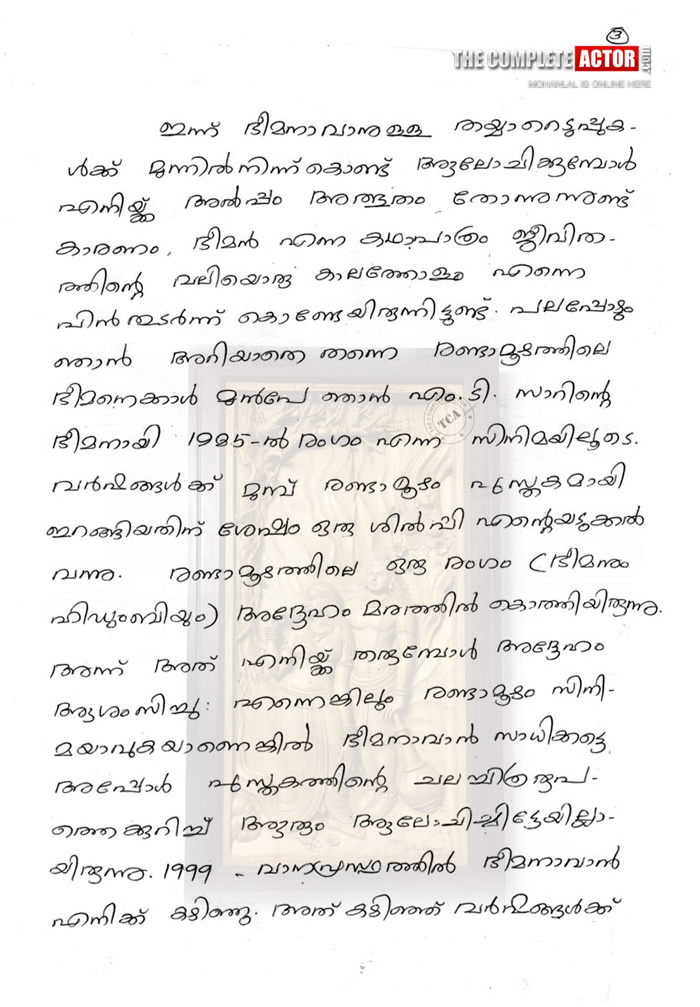 3
THE COMPLETE ACTOR .com
MOHANLAL IS ONLINE HERE
ഇന്ന് ഭീമനാവാനുള്ള തയ്യാറെടുപ്പുക-
ൾക്ക് മുന്നിൽനിന്ന് കൊണ്ട് ആലോചിക്കുമ്പോൾ
എനിയ്ക്ക് അൽപ്പം അത്ഭുതം തോന്നുന്നുണ്ട്
കാരണം, ഭീമൻ എന്ന കഥാപാത്രം ജീവിത-
ത്തിന്റെ വലിയൊരു കാലത്തോളം എന്നെ
പിൻതുടർന്ന് കൊണ്ടേയിരുന്നിട്ടുണ്ട്. പലപ്പോഴും
ഞാൻ അറിയാതെ തന്നെ രണ്ടാമൂഴത്തിലെ
ഭീമനെക്കാൾ മുൻപേ ഞാൻ എം.ടി. സാറിന്റെ
ഭീമനായി 1985-ൽ രംഗം എന്ന സിനിമയിലൂടെ.
വർഷങ്ങൾക്ക് മുമ്പ് രണ്ടാമൂഴം പുസ്തകമായി
ഇറങ്ങിയതിന് ശേഷം ഒരു ശിൽപ്പി എന്റെയടുക്കൽ
വന്നു. രണ്ടാമൂഴത്തിലെ ഒരു രംഗം (ഭീമനും
ഹിഡുംബിയും) അദ്ദേഹം മരത്തിൽ കൊത്തിയിരുന്നു.
അന്ന് അത് എനിയ്ക്ക് തരുമ്പോൾ അദ്ദേഹം
ആശംസിച്ചു: എന്നെങ്കിലും രണ്ടാമൂഴം സിനി-
മയാവുകയാണെങ്കിൽ ഭീമനാവാൻ സാധിക്കട്ടെ
അപ്പോൾ പുസ്തകത്തിന്റെ ചലച്ചിത്രരൂപ-
ത്തെക്കുറിച്ച് ആരും ആലോചിച്ചിട്ടേയില്ലാ-
യിരുന്നു. 1999 - വാനപ്രസ്ഥത്തിൽ ഭീമനാവാൻ
എനിക്ക് കഴിഞ്ഞു. അത് കഴിഞ്ഞ് വർഷങ്ങൾക്ക്
TCA